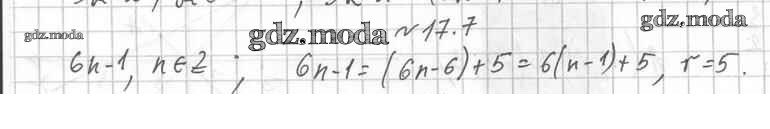 gdz.moda gdz.moda № 17.7 gdz.moda
6n-1, n∈Z ; 6n-1 = (6n-6)+5 = 6(n-1)+5, r=5.